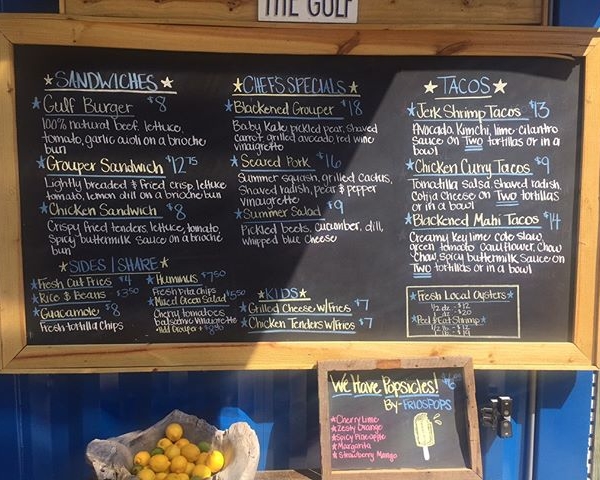 THE GULF
SANDWICHES
Gulf Burger $8
100% natural beef, lettuce,
tomato, garlic aioli on a brioche
bun
Grouper Sandwich $12.75
Lightly breaded & fried crisp lettuce
tomato, lemon dill on a brioche bun
Chicken Sandwich $8
Crispy fried tenders, lettuce, tomato,
Spicy buttermilk sauce on a brioche
bun
SIDES/SHARE
Fresh Cut Fries $4
Rice & Beans $3.50
Guacamole $8
Fresh tortilla Chips
Hummus $7.50
Fresh Pita Chips
Mixed Green Salad $5.50
Cherry tomatoes,
balsamic vinaigrette
Add Grouper +
CHEF'S SPECIALS
Blackened Grouper $18
Baby Kale, pickled pear, shaved
carrot, grilled avocado, red wine
vinaigrette
Seared Pork $16
Summer squash, grilled cactus,
Shaved radish, pear & pepper
vinaigrette
Summer Salad $9
Pickled beets, cucumber, dill,
whipped blue cheese
KIDS
Grilled Cheese w/Fries $7
Chicken Tenders w/Fries $7
TACOS
Jerk Shrimp Tacos $13
Avocado, Kimchi, lime-cilantro
sauce on Two tortillas or in a
bowl
Chicken Curry Tacos $9
Tomatilla salsa, shaved radish,
Cotija Cheese on Two tortillas
or in a bowl
Blackened Mahi Tacos $14
Creamy Key lime cole slaw,
green tomato cauliflower Chow
Chow, spicy buttermilk sauce on
Two tortillas or in a bowl
Fresh Local Oysters
1/2 dz - $12
1 dz - $20
Peel & Eat Shrimp
1/2 lb - $12
1 lb - $19
We Have Popsicles!
By-FRIOSPOPS
Cherry Lime
Zesty Orange
Spicy Pineapple
Margarita
Strawberry Mango